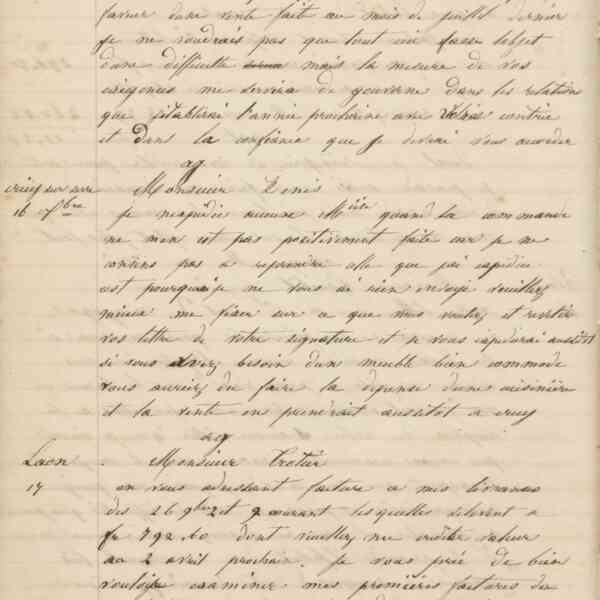 faveur dune vente fait au mois de juillet dernier
je ne voudrais pas que tout ceci fasse lobjet
dune difficulte mais la mesure de vos
exigences me servira de gouverne dans les relations
que jetablirai lannee prochaine avec votre contrée
et dans la confiance que je devrai vous accorder
ag
Monsieur Denis
crecy sur serre
16 7bre
je nexpedie aucune Mise quand la commande
ne men est pas positivement faite car je ne
consens pas a reprendre celle que jai expediee
cest pourquoi je ne vous ai rien envoye veuillez
mieux me fixer sur ce que vous voulez et revetir
vos lettre de votre signature et je vous expedierai aussitot
si vous avez besoin dun meuble bien commode
vous auriez du faire la depense dune cuisiniere
et la vente en prendrait aussitot a crecy
ag
Laon
17
Monsieur
en vous adressant facture a mes livraisons
des 26 9bre et courant lesquelles selevent a
fr 792.40 dont veuillez me crediter valeur
au 2 avril prochain. Je vous prie de bien
vouloir examiner mes premières factures du